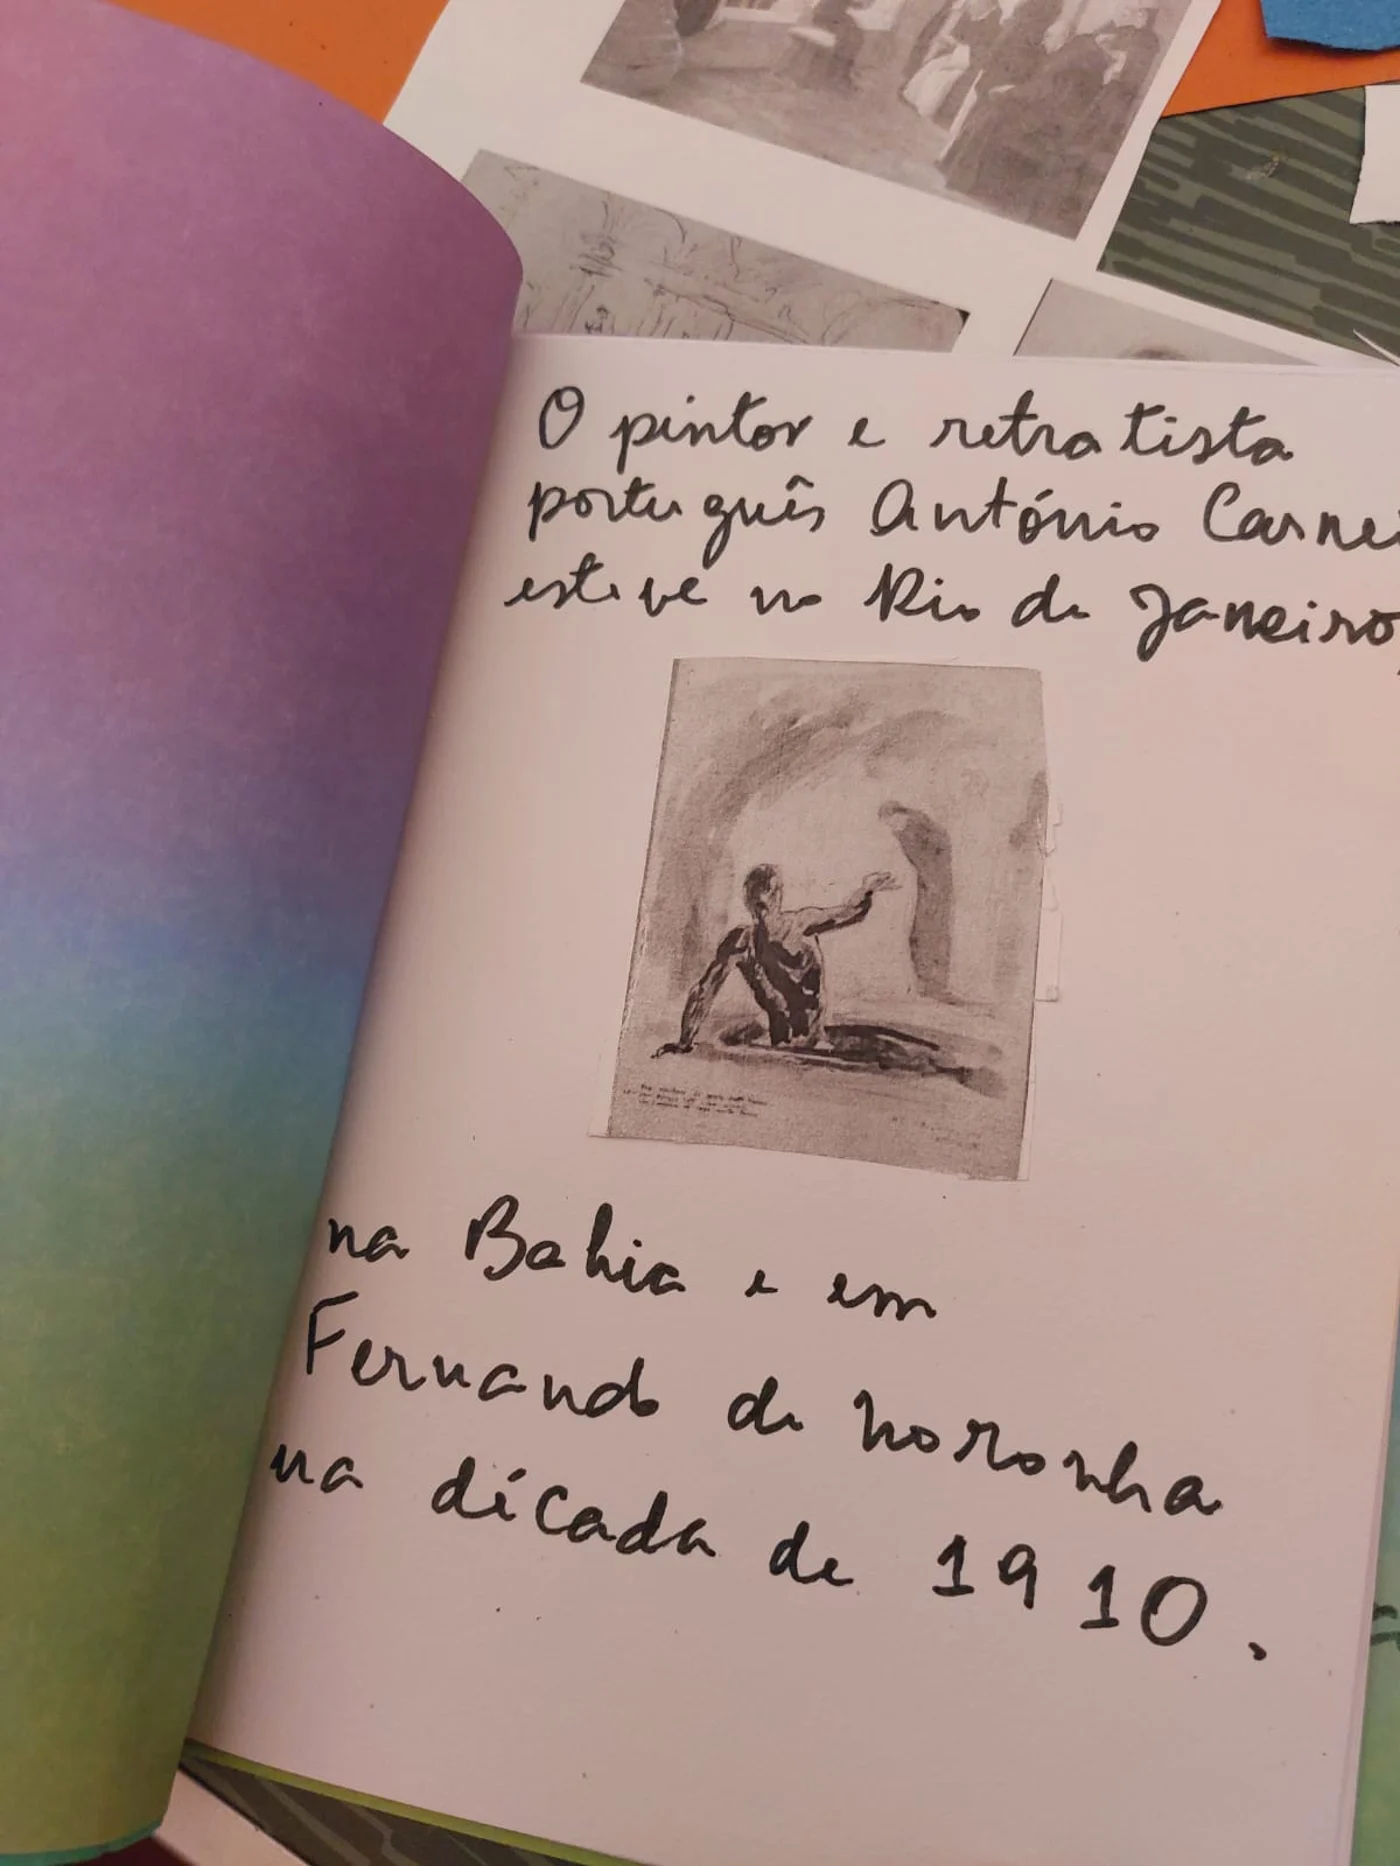 O pintor e retratista
português António Carnei
esteve no Rio de Janeiro,
na Bahia e em
Fernando de Noronha
na década de 1910.